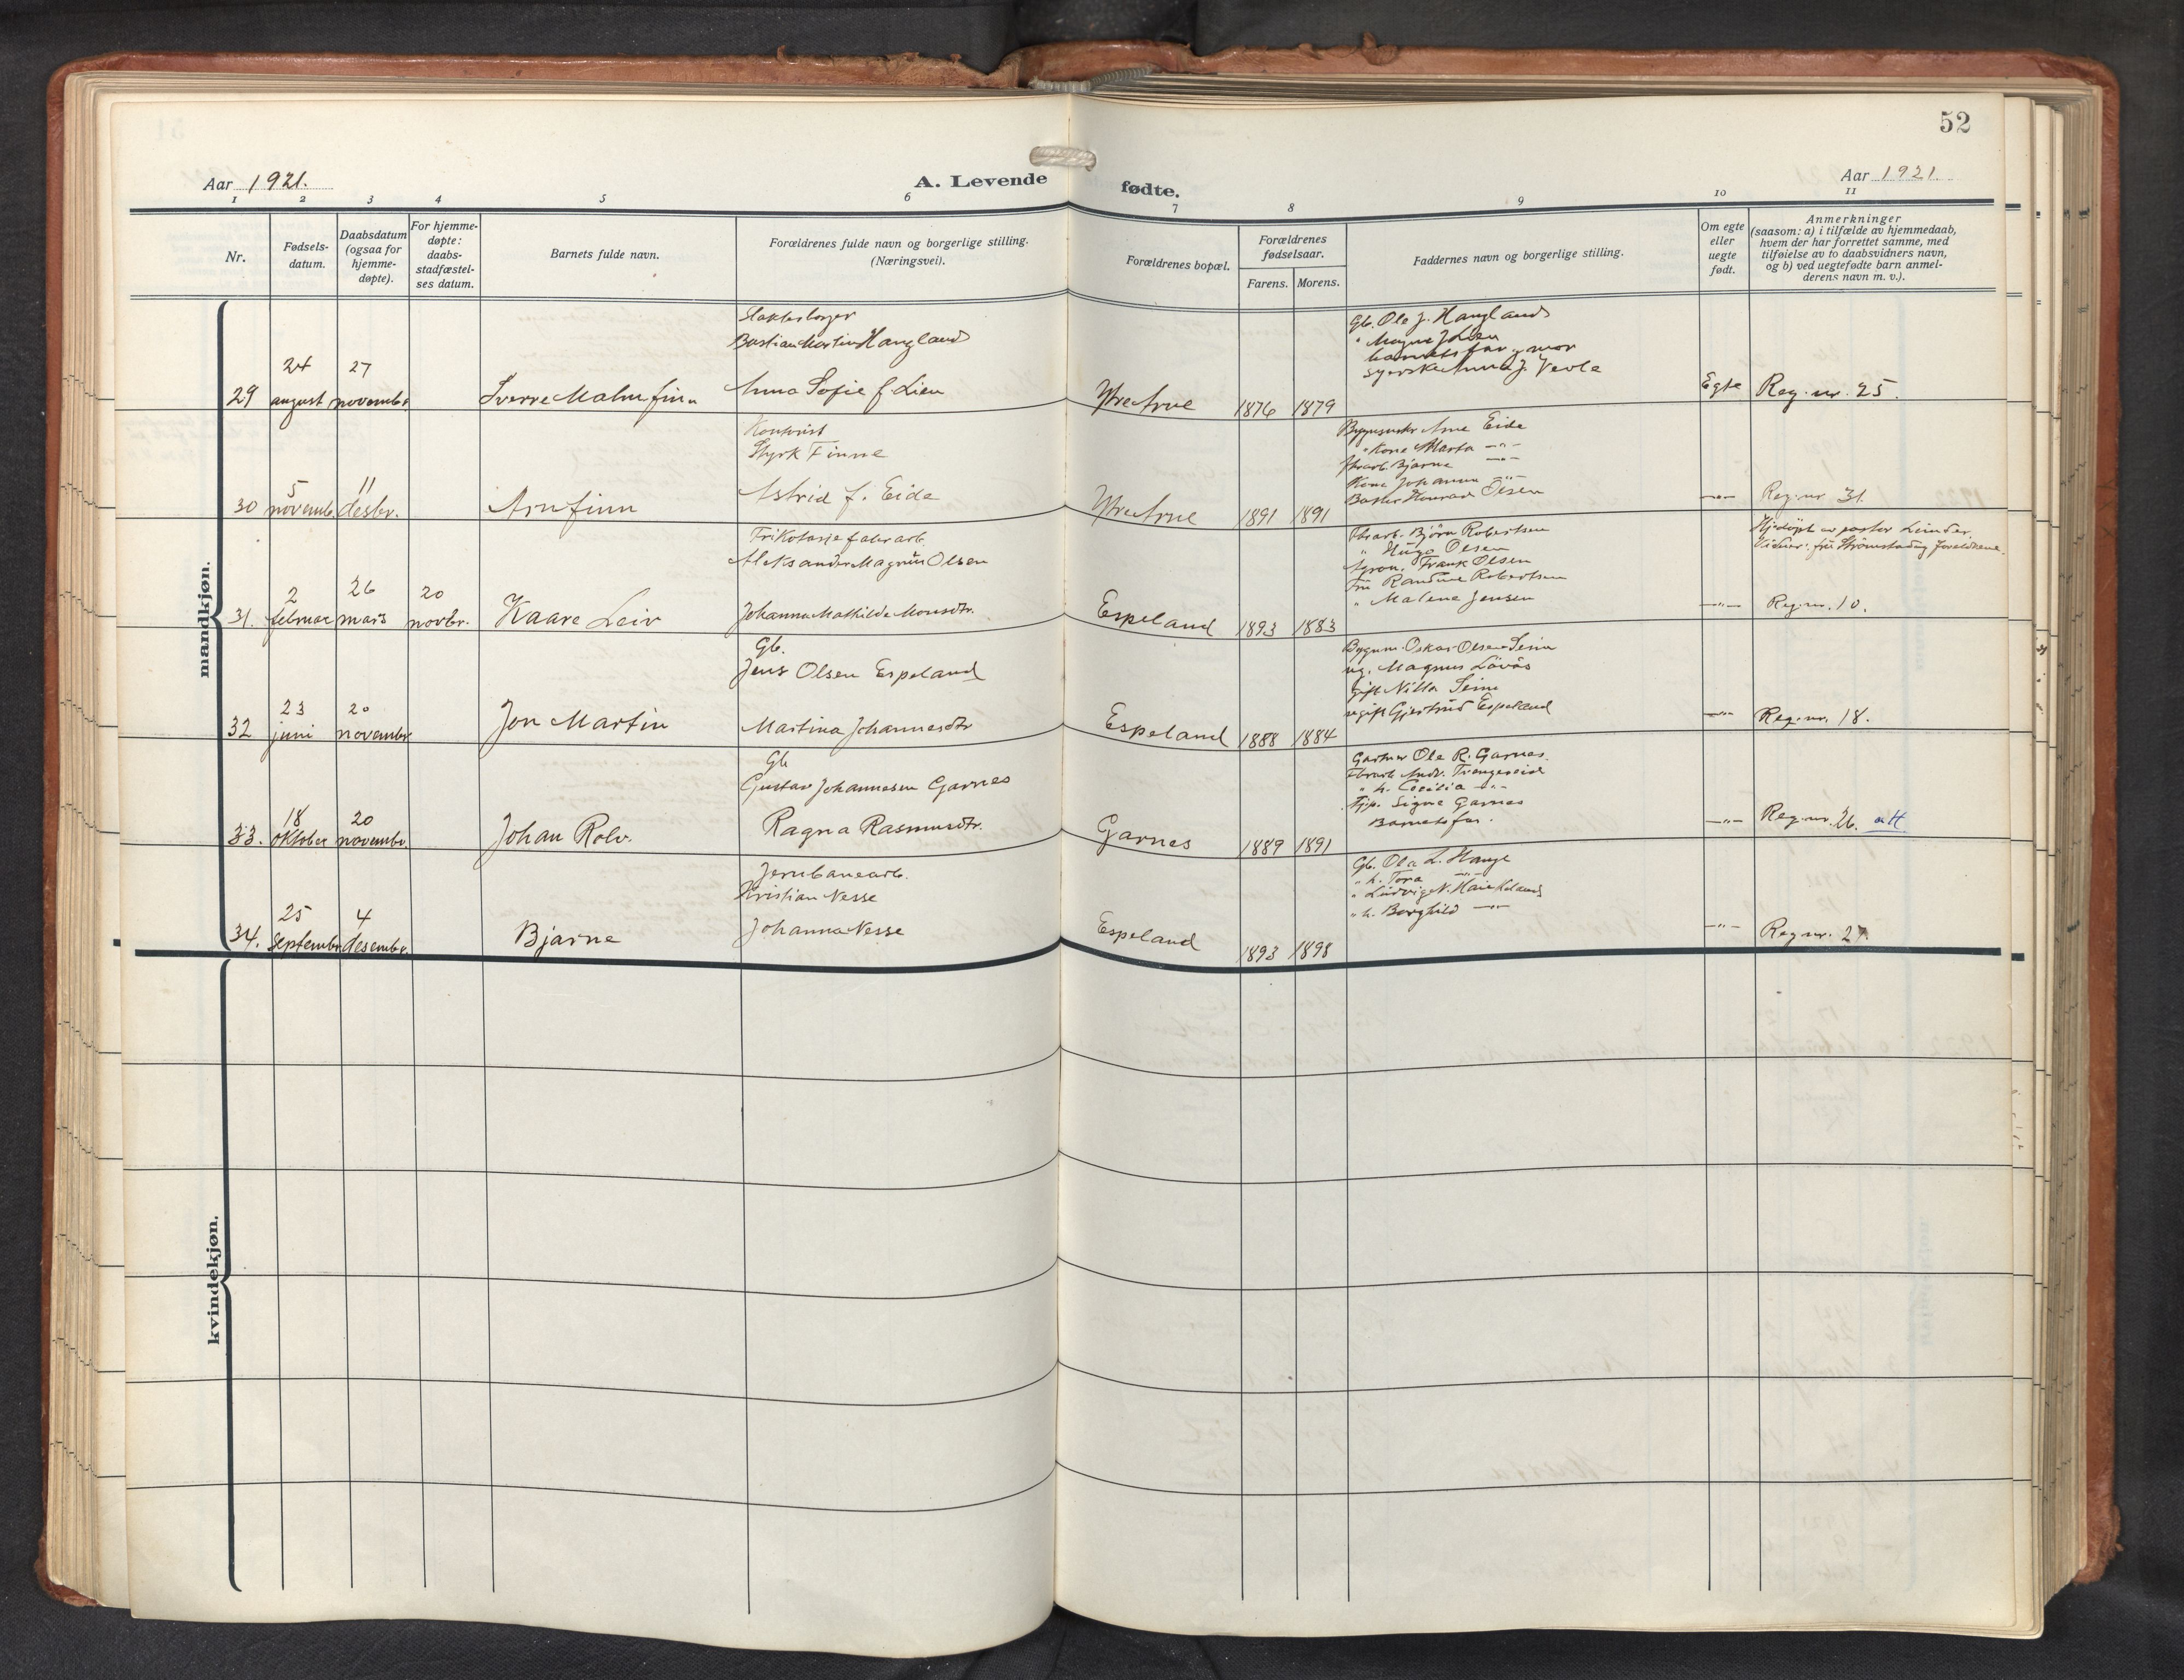 52
Aar 1921.
A. Levende fødte.
Aar 1921.
1 2 3 4 5 6 7 8 9 10 11
Nr.
Fødsels-
datum.
Daabsdatum
(ogsaa for
hjemme-
døpte).
For hjemme-
døpte:
daabs-
stadfæstel-
ses datum.
Barnets fulde navn.
Forældrenes fulde navn og borgerlige stilling.
(Næringsvei).
Forældrenes bopæl.
Forældrenes
fødselsaar.
Farens. Morens.
Faddernes navn og borgerlige stilling.
Om egte
eller
uegte
født.
Anmerkninger
(saasom: a) i tilfælde av hjemmedaab,
hvem der har forrettet samme, med
tilføielse av to daabsvidners navn,
og b) ved uegtefødte barn anmel-
derens navn m. v.).
mandkjøn.
29
24
august
27
novembr
Sverre Malm finn
Bastian Martin Haugland
Anna Sofie f. Lien
Ytre Arne
1876 1879
Gb. Ole J. Haugland
barnets far og mor
Egte
Reg. nr. 25.
30
5
novemb.
11
desbr.
Arnfinn
Kontorist
Styrk Finne
Astrid f. Eide
Ytre Arne
1891 1891
Arne Eide
" Kone Marta —"—
Bjarne —"—
Kone Johanna —"—
Olsen
—"—
Reg. nr. 31.
31.
2
februar
26
mars
20
novbr.
Kaare Leiv
Trikotasje fabr arb.
Aleksander Magnus Olsen
Johanna Mathilde Monsdtr.
Espeland
1893 1883
Fbrarb. Bjørn Robertsen
" Hugo Olsen
Frank Olsen
Fru Randine Robertsen
" Malene Jensen
—"—
Hjdöpt av pastor
foreldrene.
Reg. nr. 10.
32
23
juni
20
novembr
Jon Martin
Gb.
Jens Olsen Espeland
Martina Johannesdtr
Espeland
1888 1884
Bygnm. Oskar Olsen Seim
ug. Magnus Lövås
gift Nilla Seim
ugift Gjertrud Espeland
—"—
Reg. nr. 18.
33.
18
oktober
20
novembr.
Johan Rolv.
Gb
Gustav Johannesen Garnes
Ragna Rasmusdtr.
Garnes
1889 1891
Gartner Ole R. Garnes.
Fbrarb. Andr. Trengereid
" h. Cecilia —"—
Pip. Signe Garnes
Barnets far.
—"—
Reg. nr. 26. att
34.
25
septembr
4
desembr.
Bjarne
Jernbanearb.
Kristian Nesse
Johanna Nesse
Espeland
1893 1898
Gb. Ola L. Hauge
" h. Tora —"—
" Ludvig N.
" h. Borghild —"—
—"—
Reg nr. 27.
kvindekjøn.